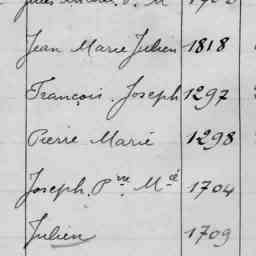 Jean Marie Julien 1818
François Joseph 1297
Pierre Marie 1298
Joseph Pre Mie 1704
Julien 1709